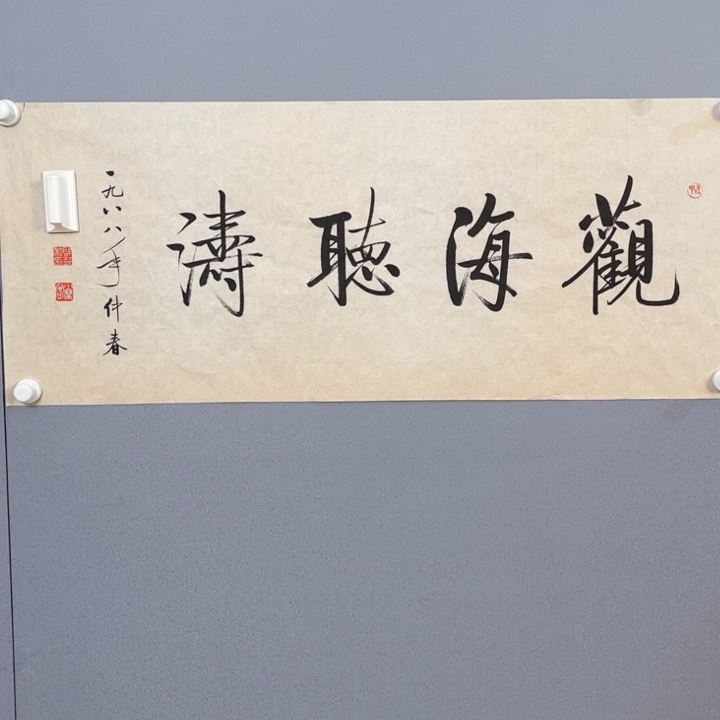 觀海聽濤
一九八八年仲春